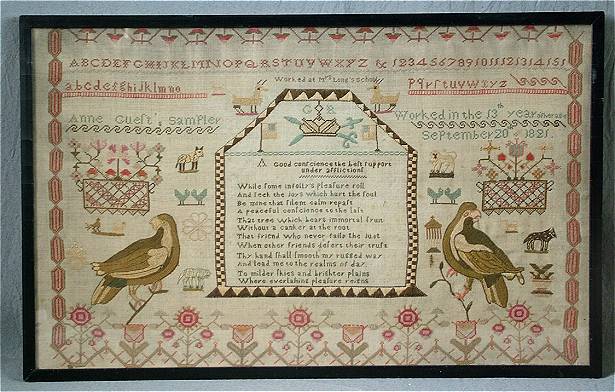 ABCDEFGHIJKLMNOPQRSTUVWXYZ & 123456789101112131415
Worked at Mrs Long's School
abcdefghijklmno pqrſtuvwxyz
Anne Gueſt's Sampler
Worked in the 13th year of her age
September 20 1821.
G R
A Good conſcience the beſt ſupport
under affliction!
While ſome in folly's pleaſure roll
And ſeek the Joys which hurt the ſoul
Be mine that ſilent calm repaſt
A peaceful conſcience to the laſt
That tree which bears immortal fruit
Without a canker at the root
That friend who never fails the Juſt
When other friends deſert their truſt
Thy hand ſhall ſmooth my rugged way
And lead me to the realms of day
To milder ſkies and brighter plains
Where everlaſting pleaſure reigns